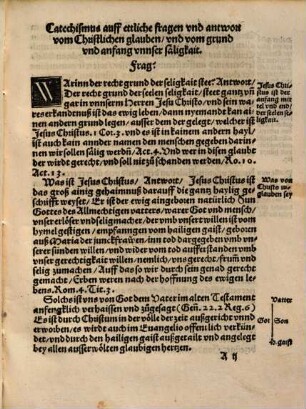 Catechismus auff ettliche fragen vnd antwort
vom Christlichen glauben / vnd vom grund
vnd anfang vnnser säligkait.
Frag:
WArinn der recht grund der seligkait stee? Antwort /
Der recht grund der seelen säligkait / steet gantz vñ
gar in vnnserm Herren Jesu Christo / vnd sein wa-
res erkandtnuß ist das ewig leben / dann nyemandt kan ai-
nen andern grund legen / ausser dem der gelegt / welcher ist
Jesus Christus. 1 Cor. 3. vnd es ist in kainem andern hayl /
ist auch kain annder namen den menschen gegeben darin-
nen wir sollen sälig werdñ. Act. 4. Vnd wer in disen glaubt
der wirdt gerecht / vnd soll nit zů schanden werden / Ro. 10.
Act. 13.
Jesus Chri-
stus ist der
anfang mit
tel vnd end /
der seelen se-
ligkait.
Was ist Jesus Christus / Antwort / Jesus Christus ist
das groß ainig gehaimnuß darauff die gantz haylig ge-
schrifft weyset / Er ist der ewig aingeboren natürlich Sun
Gottes des Allmechtigen vatters / warer Got vnd mensch /
vnser erlöser vnd säligmacher / der vmb vnsert willen ist von
hymel gestigen / empfangen vom hailigen gaist / geboren
auß Maria der junckfrawen / inn tod dargegeben vmb vn-
serer sünden willen / vnd wider vom tod aufferstanden vmb
vnser gerechtigkait willen / nemlich / vns gerecht / frum̃ vnd
selig zumachen / Auff das so wir durch sein genad gerecht
gemacht / Erben weren nach der hoffnung des ewigen le-
bens. Rom. 4. Tit. 3.
Was von
Christo zů
glauben sey
Solchs ist vns von Got dem Vater im alten Testament
anfengklich verhaissen vnd zůgesagt (Gen. 22. 2 Reg. 6)
Es ist durch Christum in der völle der zeit außgericht vnnd
erworben / es wirdt auch im Euangelio offentlich verkün-
det / vnd durch den hailigen gaist außgetailt vnd angelegt
bey allen ausserwölten glaubigen hertzen.
Vatter
Got Son
H. gaist
A ij